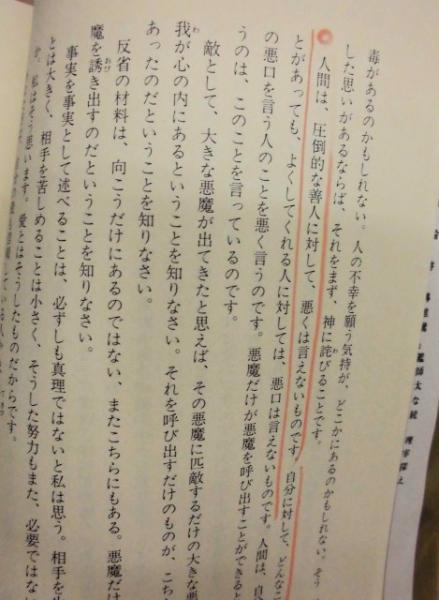 毒があるのかもしれない。人の不幸を願う気持が、どこかにあるのかもしれない。そう
した思いがあるならば、それをまず、神に詫びることです。
人間は、圧倒的な善人に対して、悪くは言えないものです。自分に対して、どんなこ
とがあっても、よくしてくれる人に対しては、悪口は言えないものです。人間は、自
の悪口を言う人のことを悪く言うのです。悪魔だけが悪魔を呼び出すことができると
うのは、このことを言っているのです。
敵として、大きな悪魔が出てきたと思えば、その悪魔に匹敵するだけの大きな悪
我が心の内にあるということを知りなさい。それを呼び出すだけのものが、こち
あったのだということを知りなさい。
反省の材料は、向こうだけにあるのではない、またこちらにもある。悪魔だけ
魔を誘き出すのだということを知りなさい。
事実を事実として述べることは、必ずしも真理ではないと私は思う。相手を生
とは大きく、相手を苦しめることは小さく、そうした努力もまた、必要ではな
私はそう思います。愛とはそうしたものだからです。